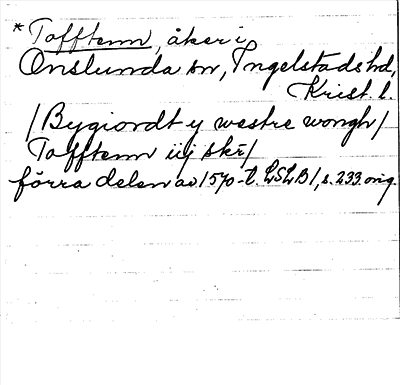 * Tofftenn, åker i
Onslunda sn, Ingelstads hd,
Krist. l.
/Bygiordt y westre wongh/
Tofftenn iij skr/
förra delen av 1570-t. LSLB1, s. 233 orig.